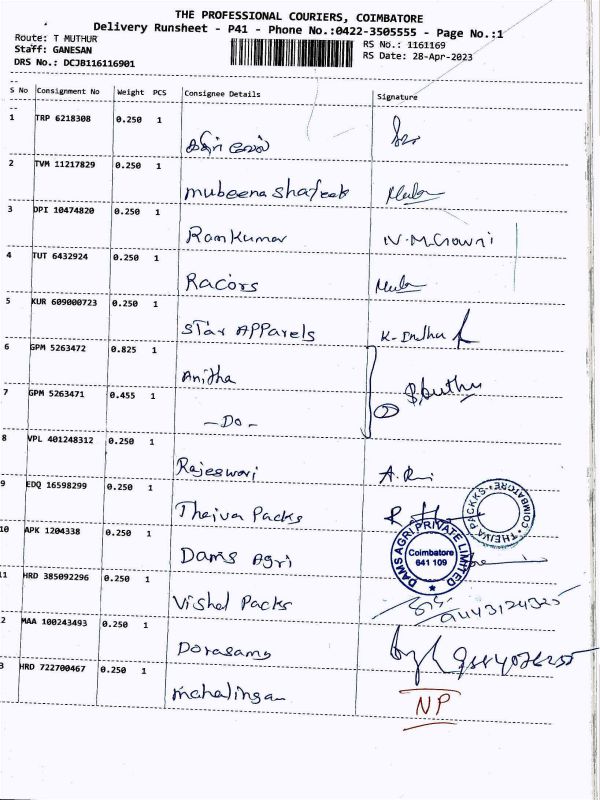 THE PROFESSIONAL COURIERS, COIMBATORE
Delivery Runsheet - P41 - Phone No.:0422-3505555 - Page No.:1
Route: T MUTHUR RS No.: 1161169
Staff: GANESAN RS Date: 28-Apr-2023
DRS No.: DCJB116116901
S No Consignment No Weight PCS Consignee Details Signature
1 TRP 6218308 0.250 1
2 TVM 11217829 0.250 1 Mubeena Shafeek
3 DPI 10474820 0.250 1 Ramkumar N.M.Gowri
4 TUT 6432924 0.250 1 Racors
5 KUR 609000723 0.250 1 Star APParels K.
6 GPM 5263472 0.825 1 Anitha
7 GPM 5263471 0.455 1 -Do- 2
8 VPL 401248312 0.250 1 Rajeswari A.
9 EDQ 16598299 0.250 1 Theiva Packs R
THEIVA PACKKS COIMBATORE
10 APK 1204338 0.250 1 Dams Agri
DAMS AGRI PRIVATE LIMITED
Coimbatore
641 109
11 HRD 385092296 0.250 1 Vishal Packs
2 MAA 100243493 0.250 1 Dorasamy
3 HRD 722700467 0.250 1 Mahalingam NP